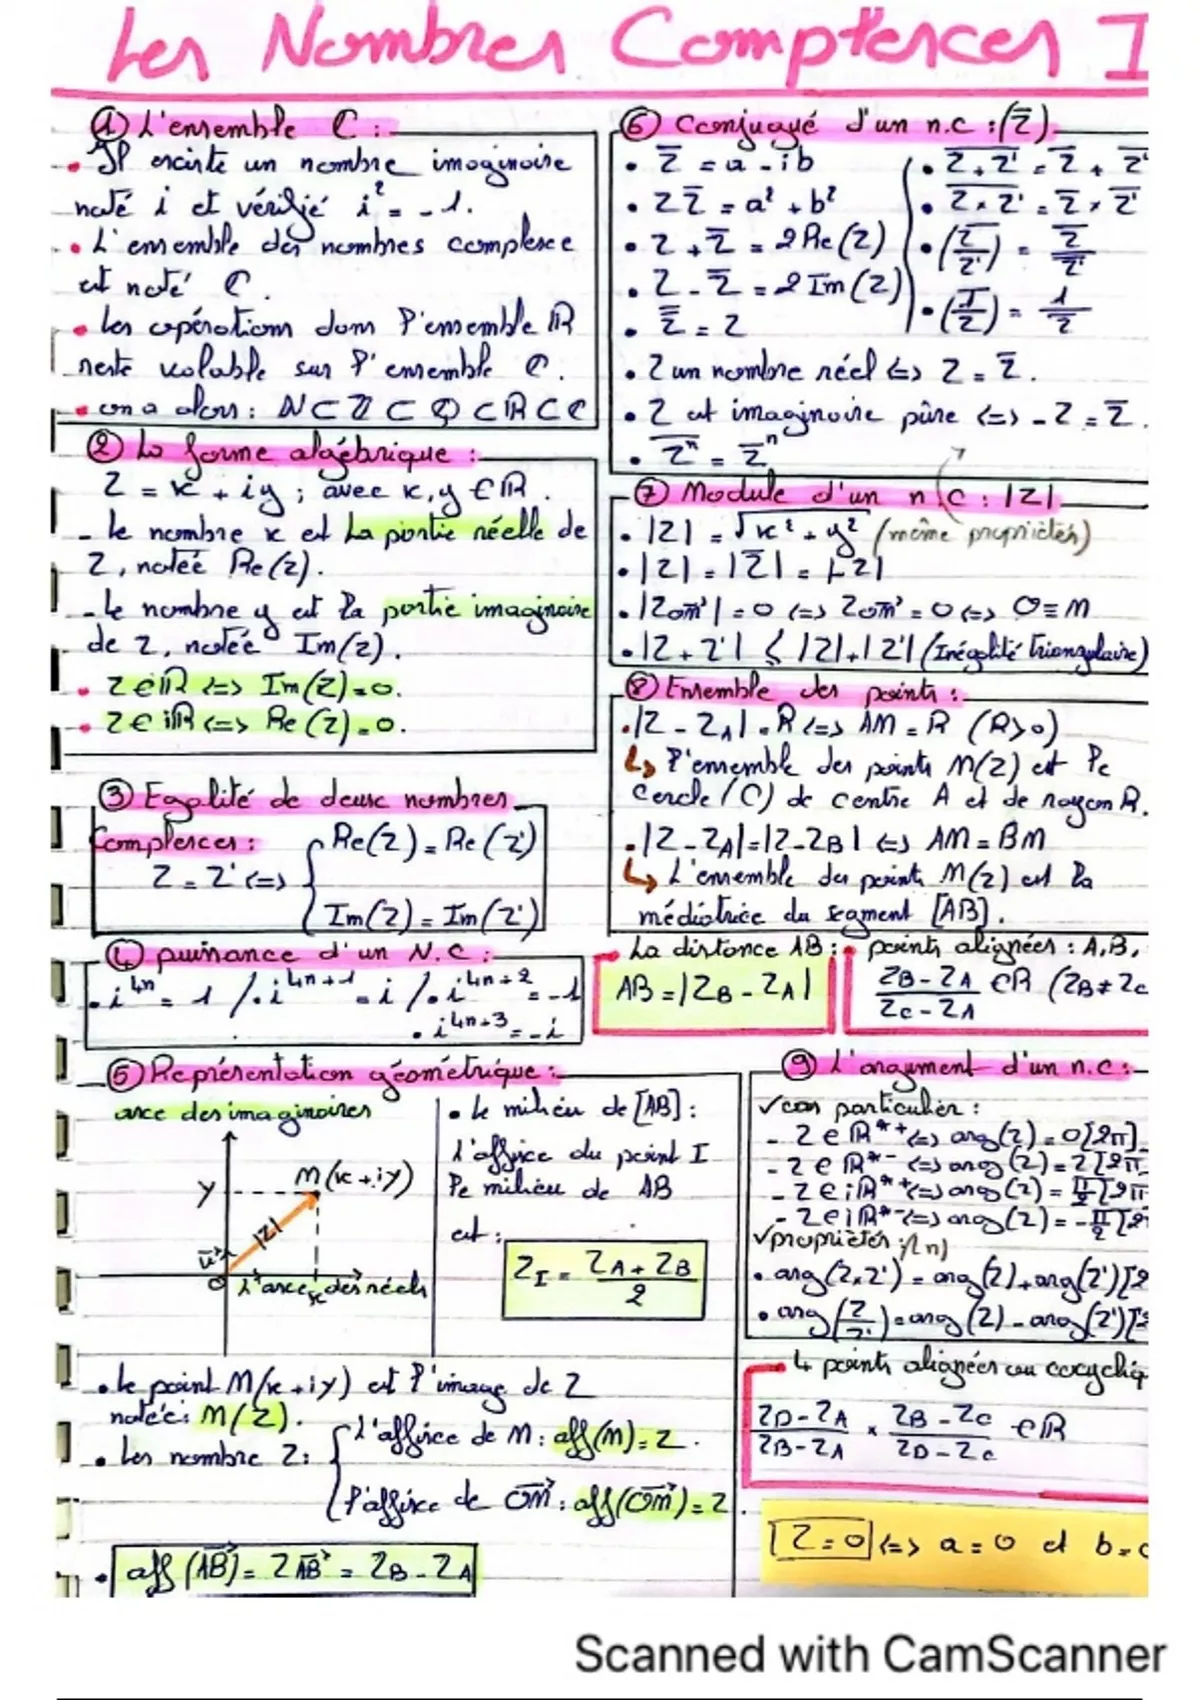 Les Nombres Complexes I
① L'ensemble ℂ :
• Il existe un nombre imaginaire
noté i et vérifié i² = -1.
• L'ensemble des nombres complexe
est noté ℂ.
• les opérations dans l'ensemble ℝ
reste valable sur l'ensemble ℂ.
• on a alors : ℕ⊂ℤ⊂ℚ⊂ℝ⊂ℂ
② La forme algébrique :
Z = x + iy ; avec x, y ∈ ℝ.
- le nombre x est la partie réelle de
Z, notée Re(z).
- le nombre y est la partie imaginaire
de Z, notée Im(z).
• Z∈ℝ <=> Im(Z)=0.
• Z∈iℝ <=> Re(Z)=0.
③ Egalité de deux nombres
Complexes :
Z = Z' <=> { Re(Z) = Re(Z')
Im(Z) = Im(Z')
④ puissance d'un N.C :
• i⁴ⁿ = 1 / • i⁴ⁿ⁺¹ = i / • i⁴ⁿ⁺² = -1
• i⁴ⁿ⁺³ = -i
⑤ Représentation géométrique :
axe des imaginaires
y
M(x+iy)
|Z|
O
L'axe des réels
x
• le milieu de [AB] :
l'affixe du point I
le milieu de AB
est :
Z_I = (Z_A + Z_B)/2
• le point M(x+iy) est l'image de Z
notée : M(Z).
• Les nombre Z : { L'affixe de M : aff(M)=Z.
l'affixe de OM⃗ : aff(OM⃗)=Z.
• aff(AB⃗) = Z AB⃗ = Z_B - Z_A
⑥ Conjugué d'un n.c : (z̅)
• z̅ = a - ib
• z z̅ = a² + b²
• z + z̅ = 2Re(Z)
• z - z̅ = 2Im(Z)
• z̿ = z
• \overline{Z+Z'} = \overline{Z} + \overline{Z'}
• \overline{Z×Z'} = \overline{Z} × \overline{Z'}
• \overline{(Z/Z')} = \overline{Z}/\overline{Z'}
• \overline{(1/Z)} = 1/\overline{Z}
• Z un nombre réel <=> Z = z̅.
• Z est imaginaire pûre <=> -Z = z̅.
• \overline{Zⁿ} = \overline{Z}ⁿ
⑦ Module d'un n.c : |Z|
• |Z| = √(x² + y²) (même propriétés)
• |Z| = |z̅| = |-Z|
• |Z OM⃗| = 0 <=> Z OM⃗ = 0 <=> O ≡ M
• |Z + Z'| ≤ |Z| + |Z'| (Inégalité triangulaire)
⑧ Ensemble des points :
• |Z - Z_A| = R <=> AM = R (R>0)
↳ l'ensemble des points M(Z) est le
cercle (C) de centre A et de rayon R.
• |Z - Z_A| = |Z - Z_B| <=> AM = BM
↳ L'ensemble des points M(z) est la
médiatrice du segment [AB].
La distance AB :
AB = |Z_B - Z_A|
points alignées : A, B,
(Z_B - Z_A)/(Z_C - Z_A) ∈ ℝ (Z_B ≠ Z_C
⑨ L'argument d'un n.c :
✓ cas particulier :
- Z∈ℝ*⁺ <=> arg(z) = 0[2π]
- Z∈ℝ*⁻ <=> arg(z) = 2[2π
- Z∈iℝ*⁺ <=> arg(z) = π/2[2π
- Z∈iℝ*⁻ <=> arg(z) = -π/2[2
✓ propriétés :
• arg(Z×Z') = arg(Z)+arg(Z')[2
• arg(Z/Z') = arg(Z) - arg(Z')[2
4 points alignées ou cocycliq
(Z_D - Z_A)/(Z_B - Z_A) × (Z_B - Z_C)/(Z_D - Z_C) ∈ ℝ
Z=0 <=> a = 0 et b =
Scanned with CamScanner